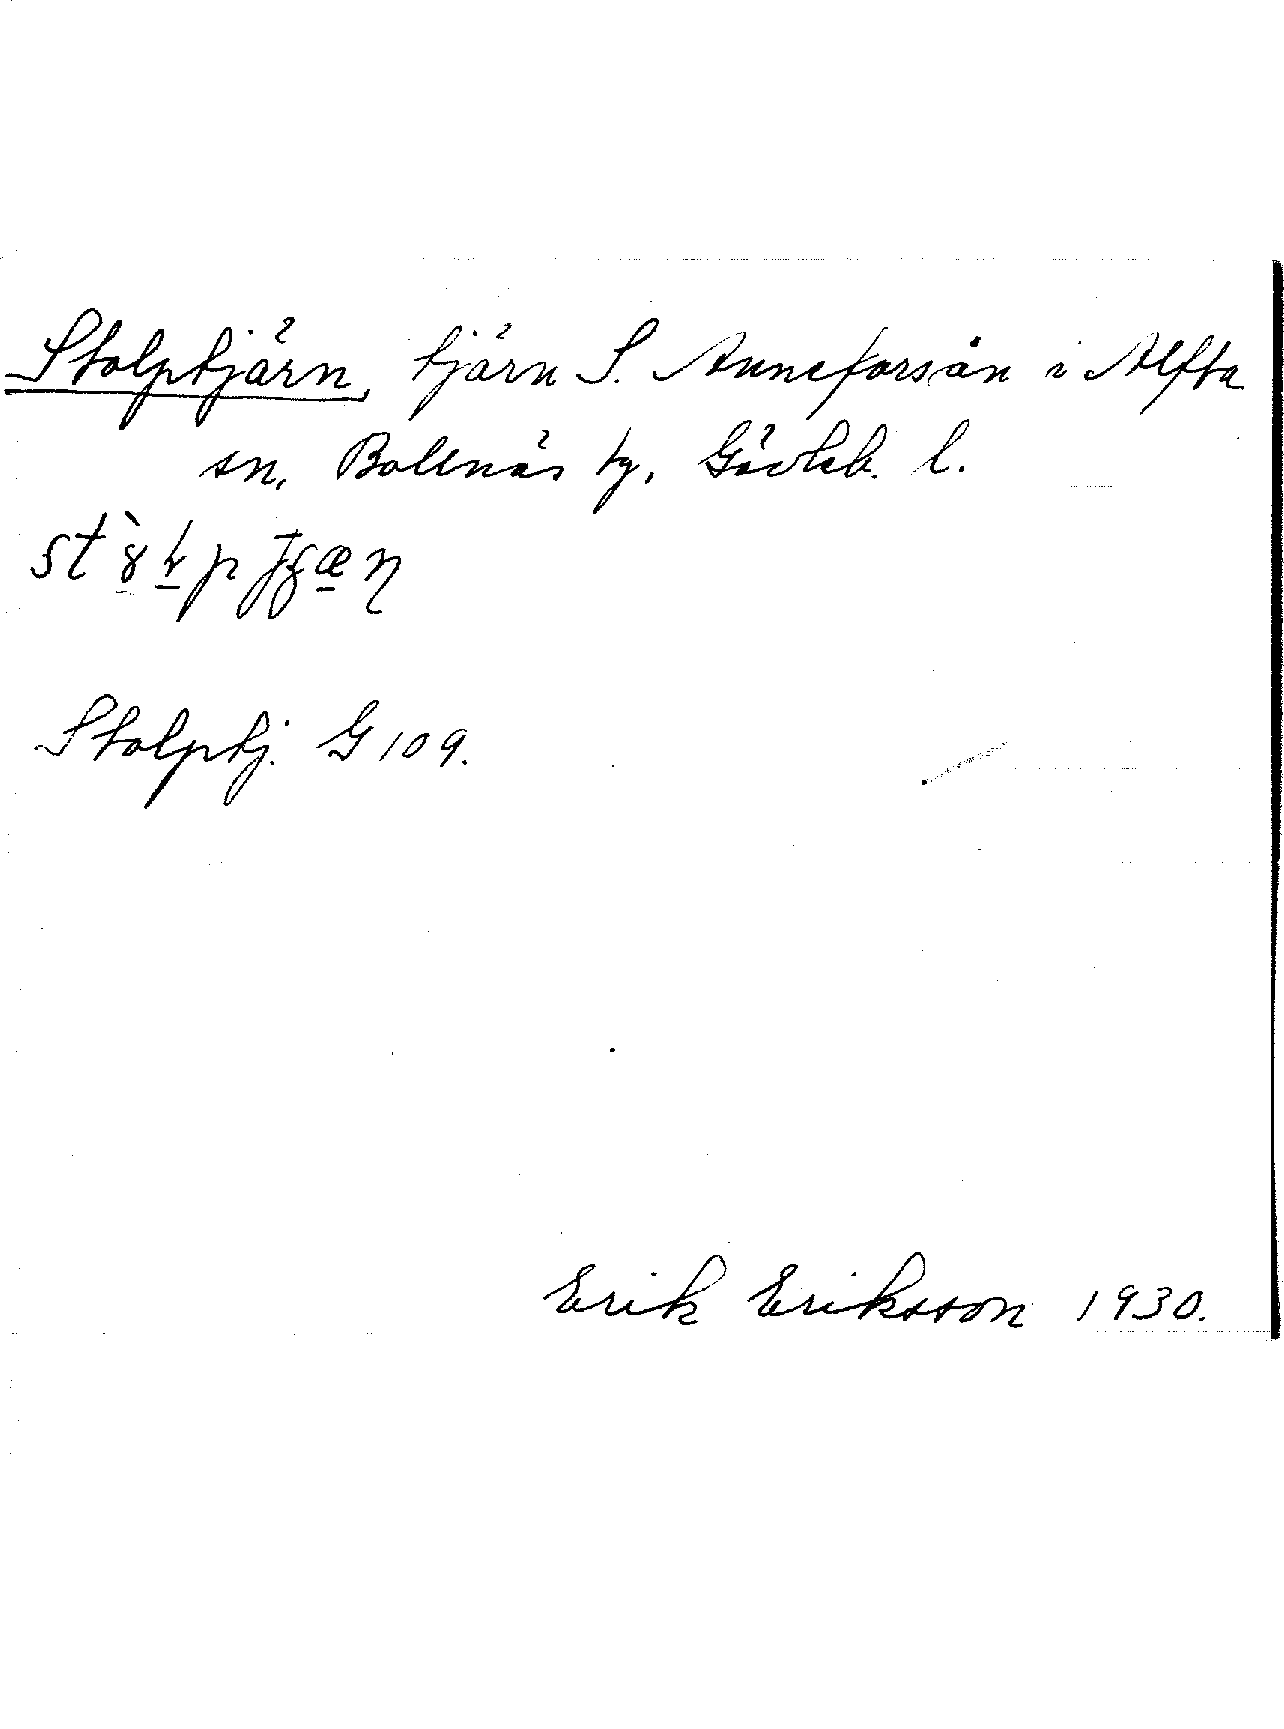 Stolptjärn, tjärn S. Annefors​ån i Alfta
sn, Bollnäs tg, Gävleb. l.
Stolptj. G 109.
Erik Eriksson 1930.